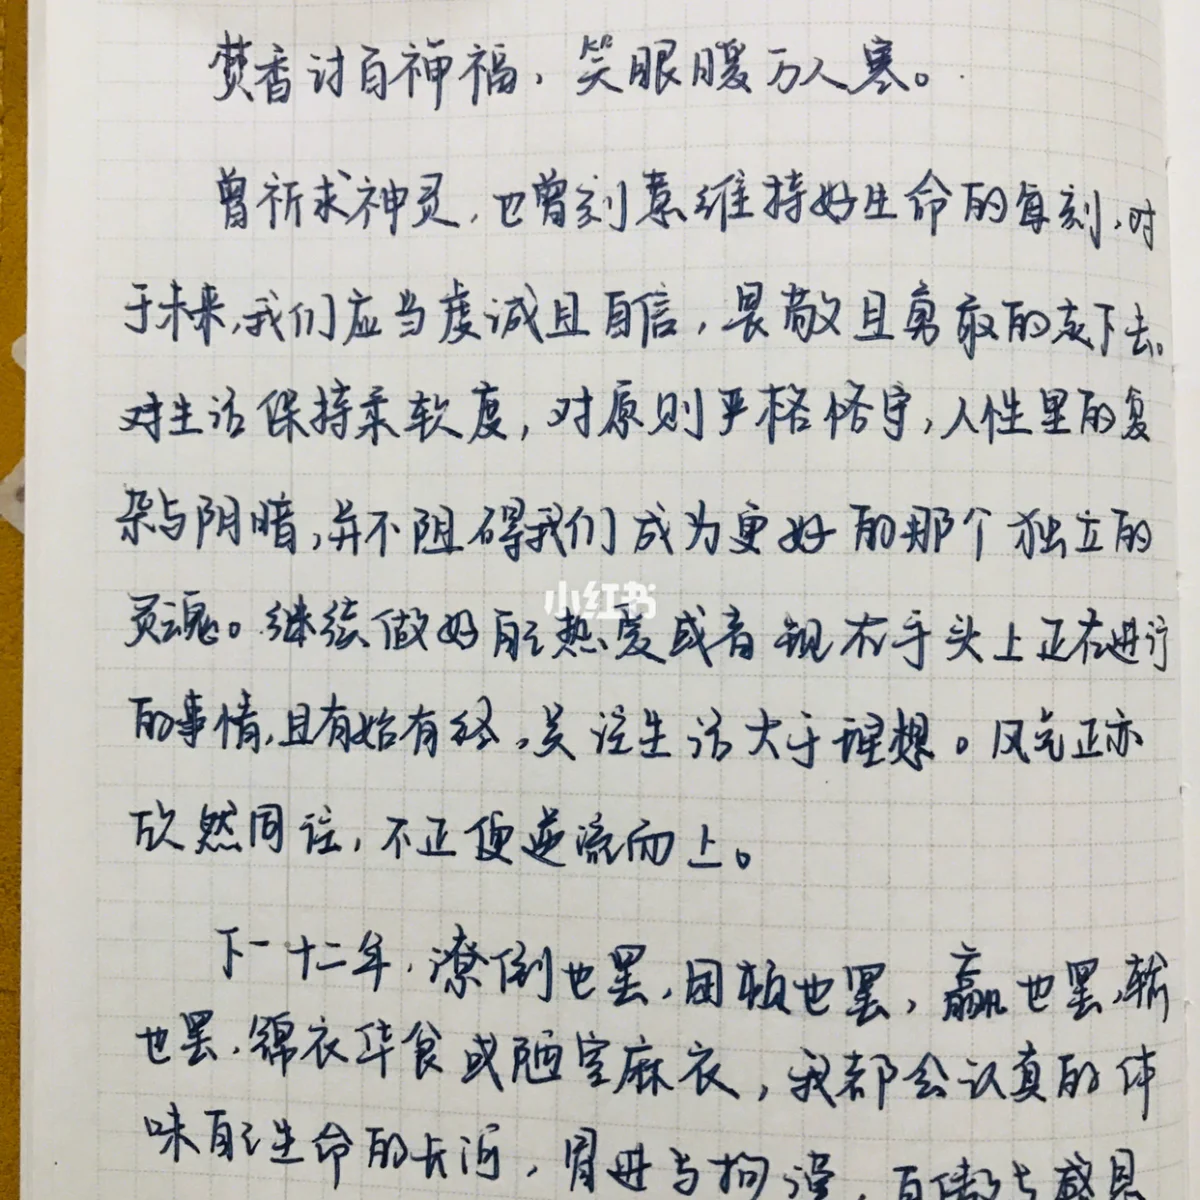 焚香讨百神福，笑眼暖万人寒。
曾祈求神灵，也曾刻意维持好生命的每刻，对
于未来，我们应当虔诚且自信，畏敬且勇敢的走下去。
对生活保持柔软度，对原则严格恪守，人性里的复
杂与阴暗，并不阻碍我们成为更好的那个独立的
灵魂。继续做好自己热爱或者现在手头上正在进行
的事情，且有始有终，关注生活大于理想。风气正亦
欣然同往，不正便逆流而上。
小红书
下一十二年，潦倒也罢，困顿也罢，赢也罢，输
也罢，锦衣华食或陋室麻衣，我都会认真的体
味自己生命的长河，冒进与拘谨，自傲与感恩